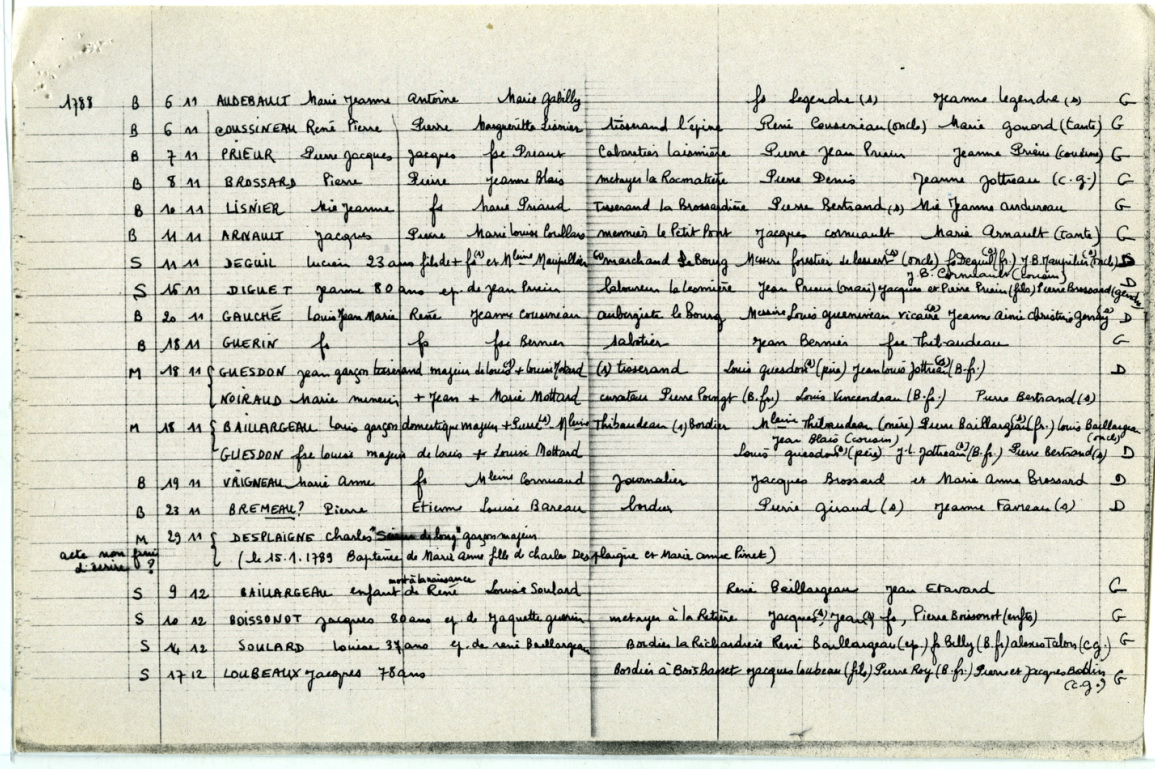 1788 B 6 11 AUDEBAULT Marie Jeanne Antoine Marie Gabilly fs Legendre (s) Jeanne Legendre (s) G
B 6 11 COUSSINEAU René Pierre Pierre Marguerite Lisnier tisserand l'épine René Cousseniau (oncle) Marie gonord (tante) G
B 7 11 PRIEUR Pierre Jacques Jacques fse Preaut Cabaretier laismière Pierre Jean Prieur Jeanne Prieur (cousins) G
B 8 11 BROSSARD Pierre Pierre Jeanne Blais metayer la Racmatière Pierre Denis Jeanne Jottreau (c.g.) G
B 10 11 LISNIER Mie Jeanne fs Marie Priaud Tisserand la Brossardière Pierre Bertrand (s) Mie Jeanne andureau G
B 11 11 ARNAULT Jacques Pierre Marie Louise Poullars meunier le Petit Pont Jacques cornuault Marie Arnault (tante) G
S 11 11 DEGUIL Lucien 23 ans fils de + fs (s) et Mleine Maupillier marchand le Bourg Messire forestier de lessert (s) (oncle) f. Deguil (s) (fr.) J.B. Maupilier (s) (oncle) D
J.B. Cornuault (cousin)
S 15 11 DIGUET Jeanne 80 ans ep. de Jean Prieur laboureur la Jean Prieur (mari) Jacques et Pierre Prieur (fils) Pierre Brossard (gendre) D
B 20 11 GAUCHÉ Louis Jean Marie René Jeanne Cousineau aubergiste le bourg Messire Louis queneniveau vicaire (s) Jeanne Aimée christine (s) D
B 18 11 GUERIN fs fs fse Bernier sabotier Jean Bernier fse Thibaudeau G
M 18 11 GUESDON Jean garçon tisserand majeur de louis (s) + louise Motard (s) tisserand Louis guesdon (s) (père) Jean louis Jottreau (s) (B.fr.) D
NOIRAUD Marie mineure + Jean + Marie Mottard curateur Pierre Poingt (B.fr.) Louis Vincendeau (B.fr.) Pierre Bertrand (s)
M 18 11 BAILLARGEAU Louis garçon domestique majeur + Pierre (s) Mleine Thibaudeau (s) Bordier Mleine Thibaudeau (mère) Pierre Baillargeau (s) (fr.) Louis Baillargeau (oncle)
Jean Blais (cousin)
GUESDON fse Louise majeure de Louis + Louise Mottard Louis guesdon (s) (père) J.L. Jottreau (s) (B.fr.) Pierre Bertrand (s) D
B 19 11 VRIGNEAU Marie Anne fs Mleine Cornuaud Journalier Jacques Brossard et Marie Anne Brossard D
B 23 11 BREMEAU? Pierre Etienne Louise Bareau bordier Pierre Giraud (s) Jeanne Favreau (s) D
M 29 11 DESPLAIGNE Charles "Scieur de long" garçon majeur
acte non fini d'écrire ? (le 15.1.1789 Baptême de Marie Anne fille de Charles Desplaigne et Marie anne Pinet)
S 9 12 BAILLARGEAU enfant mort à la naissance de René Louise Soulard René Baillargeau Jean Etavard G
S 10 12 BOISSONOT Jacques 80 ans ep. de Jaquette guerrin metayer à la Retière Jacques (s), Jean (s) fs, Pierre Boisonot (enfts) G
S 14 12 SOULARD Louise 37 ans ep. de rené Baillargeau Bordier la Richardrie René Baillargeau (ep.) f. Billy (B.fr) alexis Talon (c.g.) G
S 17 12 LOUBEAUX Jacques 78 ans Bordier à Bois Basset Jacques Loubeau (fils) Pierre Roy (B.fr.) Pierre et Jacques Bodin (c.g.) G